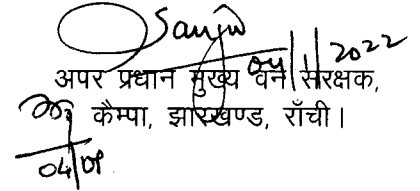 Sanjiv
04/1/2022
अपर प्रधान मुख्य वन संरक्षक,
कैम्पा, झारखण्ड, राँची ।
04/01